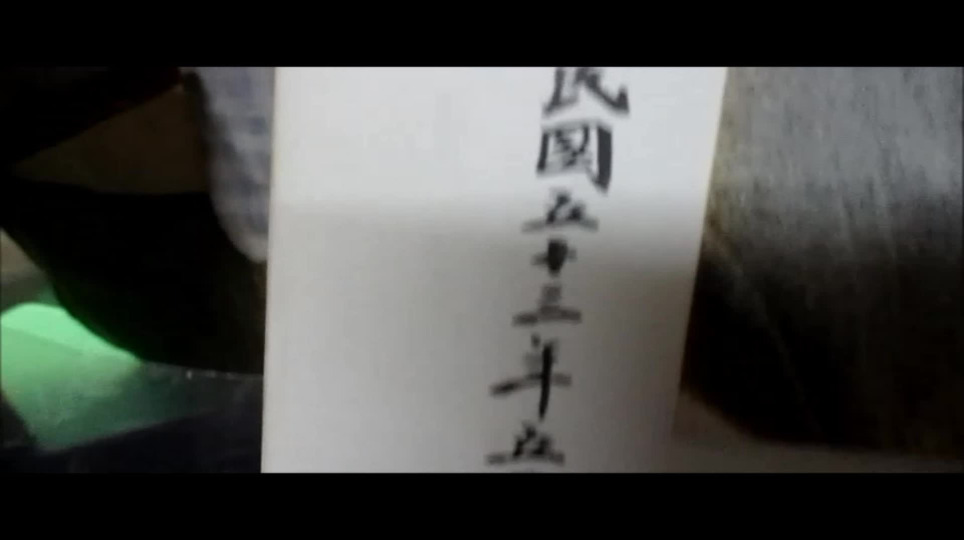 民國五十三年五